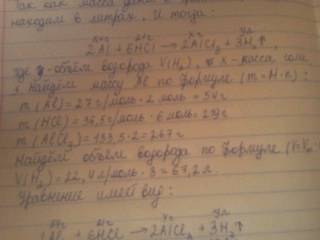 Так как масса дана в гр
находим в литрах. И тогда:
Xг 21г Xг Yл
2Al + 6HCl → 2AlCl₃ + 3H₂↑,
где Y - объём водорода V(H₂), X - масса соли
1. Найдём массу Al по формуле (m = M · n):
m (Al) = 27 г/моль · 2 моль = 54 г
m (HCl) = 36,5 г/моль · 6 моль = 219 г
m (AlCl₃) = 133,5 · 2 = 267 г
Найдём объём водорода по формуле (V = Vₘ
V(H₂) = 22,4 г/моль · 3 = 67,2 л.
Уравнение имеет вид:
21г Xг Yл
2Al + 6HCl → 2AlCl₃ + 3H₂↑